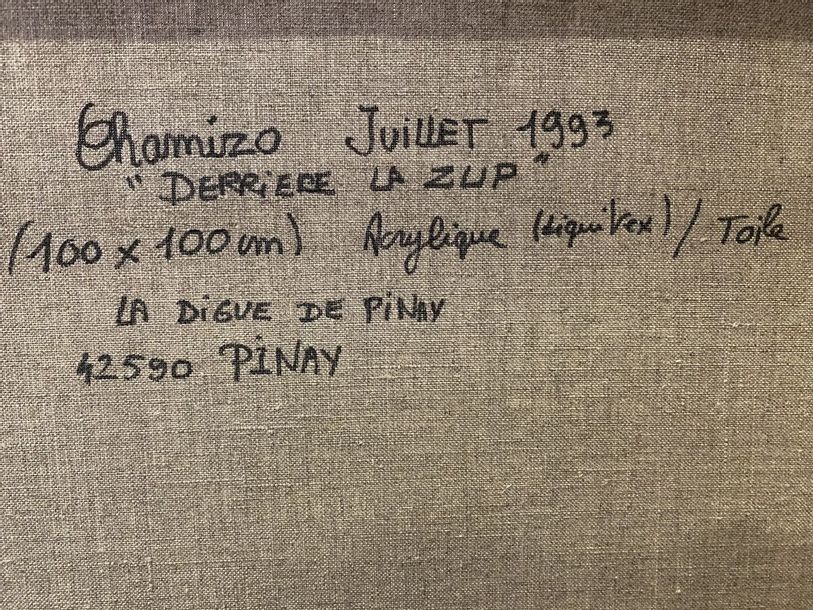 Chamizo JUILLET 1993
"DERRIERE LA ZUP"
(100 x 100 cm) Acrylique (Liquitex) / Toile
LA DIGUE DE PINAY
42590 PINAY